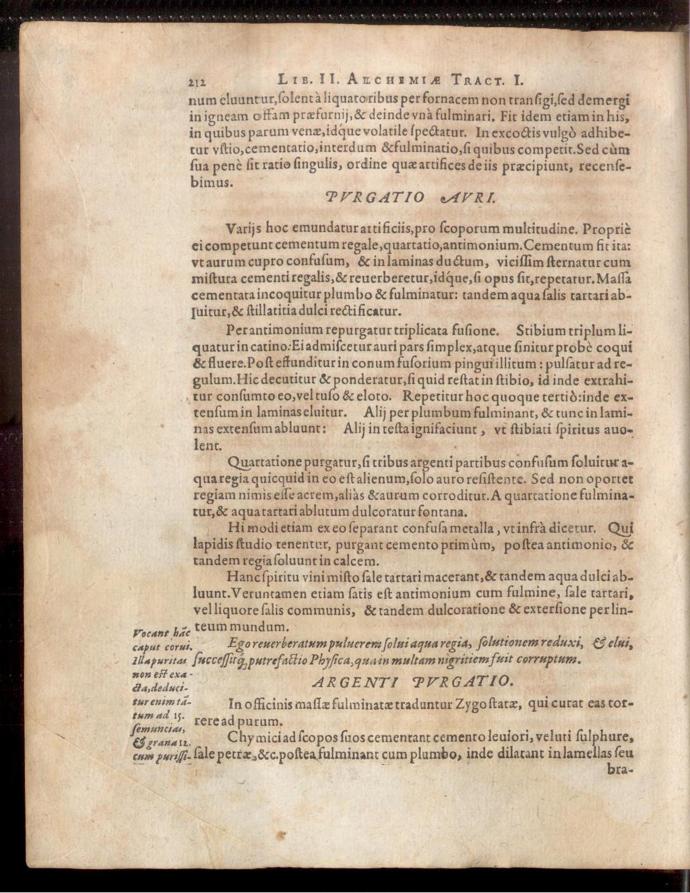 212 LIB. II. ALCHEMIÆ TRACT. I.
num eluuntur, solent à liquatoribus per fornacem non transigi, sed demergi
in igneam offam præfurnij, & deinde vnà fulminari. Fit idem etiam in his,
in quibus parum venæ, idq́ue volatile spectatur. In excoctis vulgò adhibe-
tur vstio, cementatio, interdum & fulminatio, si quibus competit. Sed cùm
sua penè sit ratio singulis, ordine quæ artifices de iis præcipiunt, recense-
bimus.
PVRGATIO AVRI.
Varijs hoc emundatur artificiis, pro scoporum multitudine. Propriè
ei competunt cementum regale, quartatio, antimonium. Cementum fit ita:
vt aurum cupro confusum, & in laminas ductum, vicissim sternatur cum
mistura cementi regalis, & reuerberetur, idq́ue, si opus sit, repetatur. Massa
cementata incoquitur plumbo & fulminatur: tandem aqua salis tartari ab-
luitur, & stillatitia dulci rectificatur.
Per antimonium repurgatur triplicata fusione. Stibium triplum li-
quatur in catino: Ei admiscetur auri pars simplex, atque sinitur probè coqui
& fluere. Post effunditur in conum fusorium pingui illitum: pulsatur ad re-
gulum. Hic decutitur & ponderatur, si quid restat in stibio, id inde extrahi-
tur consumto eo, vel tuso & eloto. Repetitur hoc quoque tertiò: inde ex-
tensum in laminas eluitur. Alij per plumbum fulminant, & tunc in lami-
nas extensum abluunt: Alij in testa ignifaciunt, vt stibiati spiritus auo-
lent.
Quartatione purgatur, si tribus argenti partibus confusum soluitur a-
qua regia quicquid in eo est alienum, solo auro resistente. Sed non oportet
regiam nimis esse acrem, aliàs & aurum corroditur. A quartatione fulmina-
tur, & aqua tartari ablutum dulcoratur fontana.
Hi modi etiam ex eo separant confusa metalla, vt infrà dicetur. Qui
lapidis studio tenentur, purgant cemento primùm, postea antimonio, &
tandem regia soluunt in calcem.
Hanc spiritu vini misto sale tartari macerant, & tandem aqua dulci ab-
luunt. Veruntamen etiam satis est antimonium cum fulmine, sale tartari,
vel liquore salis communis, & tandem dulcoratione & extersione per lin-
teum mundum.
Ego reuerberatum puluerem solui aqua regia, solutionem reduxi, & elui,
successitq́; putrefactio Physica, qua in multam nigritiem fuit corruptum.
Vocant hãc
caput corui.
Illa puritas
non est exa-
cta, deduci-
tur enim tã-
tum ad 15.
semuncias,
& grana 12.
cum purissi-
ARGENTI PVRGATIO.
In officinis massæ fulminatæ traduntur Zygostatæ, qui curat eas tor-
rere ad purum.
Chymici ad scopos suos cementant cemento leuiori, veluti sulphure,
sale petræ, &c. postea fulminant cum plumbo, inde dilatant in lamellas seu
bra-